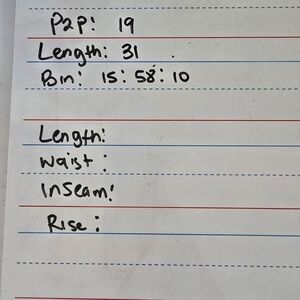 P2P: 19
Length: 31
Bin: 15:58:10
Length:
Waist:
Inseam:
Rise: